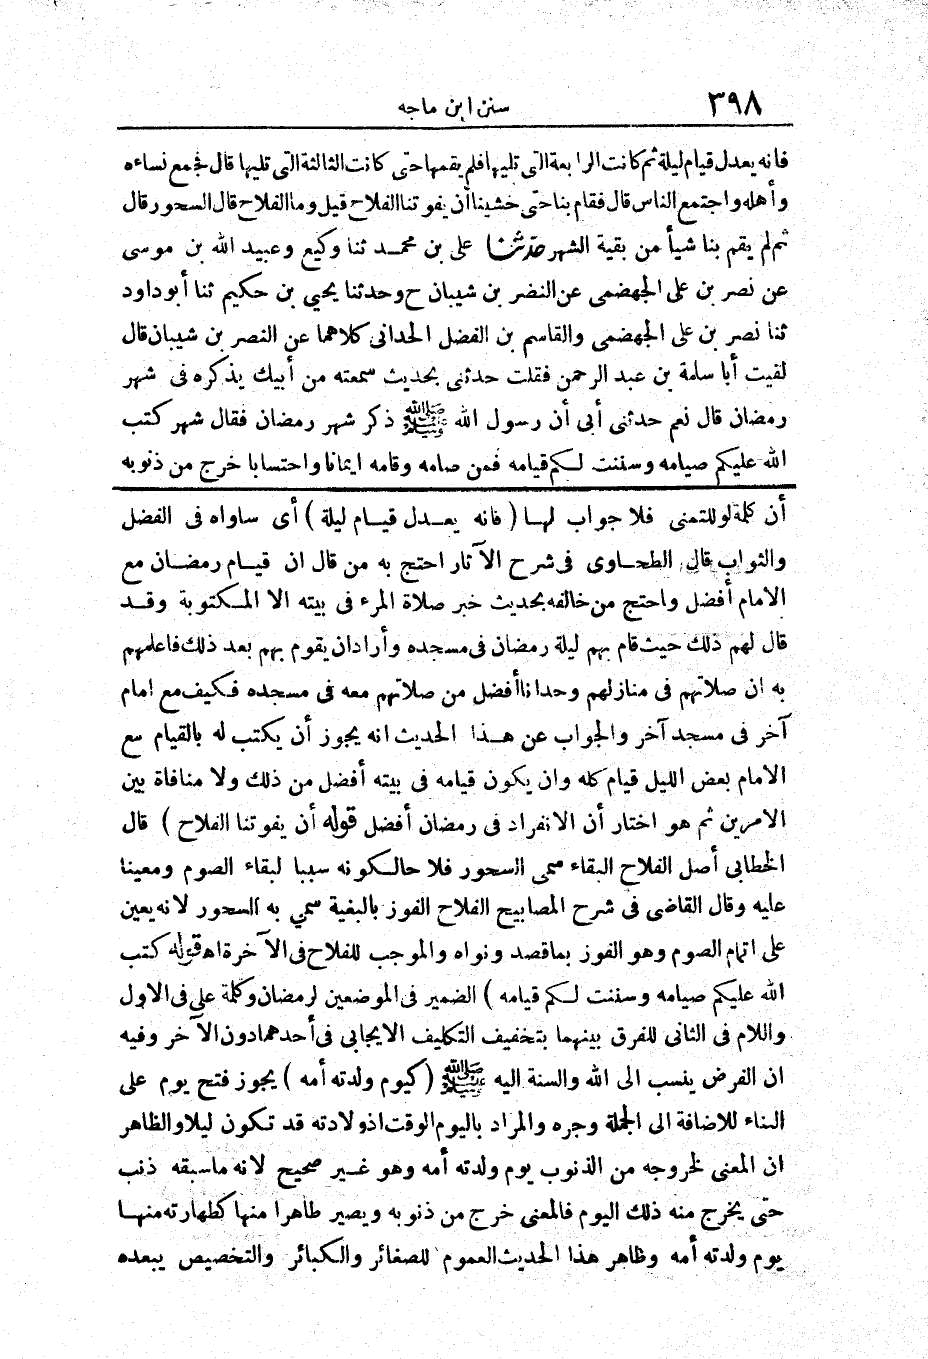 ٣٩٨
سنن ابن ماجه
فانه يعدل قيام ليلة ثم كانت الرابعة التى تليها فلم يقمها حتى كانت الثالثة التى تليها قال فجمع نساءه
وأهله واجتمع الناس قال فقام بنا حتى خشينا أن يفوتنا الفلاح قيل وما الفلاح قال السحور قال
ثم لم يقم بنا شيأ من بقية الشهر حدثنا على بن محمد ثنا وكيع وعبيد الله بن موسى
عن نصر بن على الجهضمى عن النضر بن شيبان ح وحدثنا يحيي بن حكيم ثنا أبو داود
ثنا نصر بن على الجهضمى والقاسم بن الفضل الحدانى كلاهما عن النصر بن شيبان قال
لقيت أبا سلمة بن عبد الرحمن فقلت حدثنى بحديث سمعته من أبيك يذكره فى شهر
رمضان قال نعم حدثنى أبى أن رسول الله ﷺ ذكر شهر رمضان فقال شهر كتب
الله عليكم صيامه وسننت لكم قيامه فمن صامه وقامه ايمانا واحتسابا خرج من ذنوبه
أن كلمة لو للتمنى فلا جواب لها ( فانه يعدل قيام ليلة ) أى ساواه فى الفضل
والثواب قال الطحاوى فى شرح الآثار احتج به من قال ان قيام رمضان مع
الامام أفضل واحتج من خالفه بحديث خبر صلاة المرء فى بيته الا المكتوبة وقد
قال لهم ذلك حيث قام بهم ليلة رمضان فى مسجده وأرادان يقوم بهم بعد ذلك فاعلمهم
به ان صلاتهم فى منازلهم وحدانا أفضل من صلاتهم معه فى مسجده فكيف مع امام
آخر فى مسجد آخر والجواب عن هذا الحديث انه يجوز أن يكتب له بالقيام مع
الامام بعض الليل قيام كله وان يكون قيامه فى بيته أفضل من ذلك ولا منافاة بين
الامرين ثم هو اختار أن الانفراد فى رمضان أفضل قوله أن يفوتنا الفلاح ) قال
الخطابى أصل الفلاح البقاء سمى السحور فلاحا لكونه سببا لبقاء الصوم ومعينا
عليه وقال القاضى فى شرح المصابيح الفلاح الفوز بالبغية سمي به السحور لانه يعين
على اتمام الصوم وهو الفوز بما قصد ونواه والموجب للفلاح فى الآخرة اه قوله كتب
الله عليكم صيامه وسننت لكم قيامه ) الضمير فى الموضعين لرمضان وكلمة على فى الاول
واللام فى الثانى للفرق بينهما بتخفيف التكليف الايجابى فى أحدهما دون الآخر وفيه
ان الفرض ينسب الى الله والسنة اليه ﷺ ( كيوم ولدته أمه ) يجوز فتح يوم على
البناء للاضافة الى الجملة وجره والمراد باليوم الوقت اذ ولادته قد تكون ليلا والظاهر
ان المعنى لخروجه من الذنوب يوم ولدته أمه وهو غير صحيح لانه ماسبقه ذنب
حتى يخرج منه ذلك اليوم فالمعنى خرج من ذنوبه ويصير طاهرا منها كطهارته منها
يوم ولدته أمه وظاهر هذا الحديث العموم للصغائر والكبائر والتخصيص يبعده